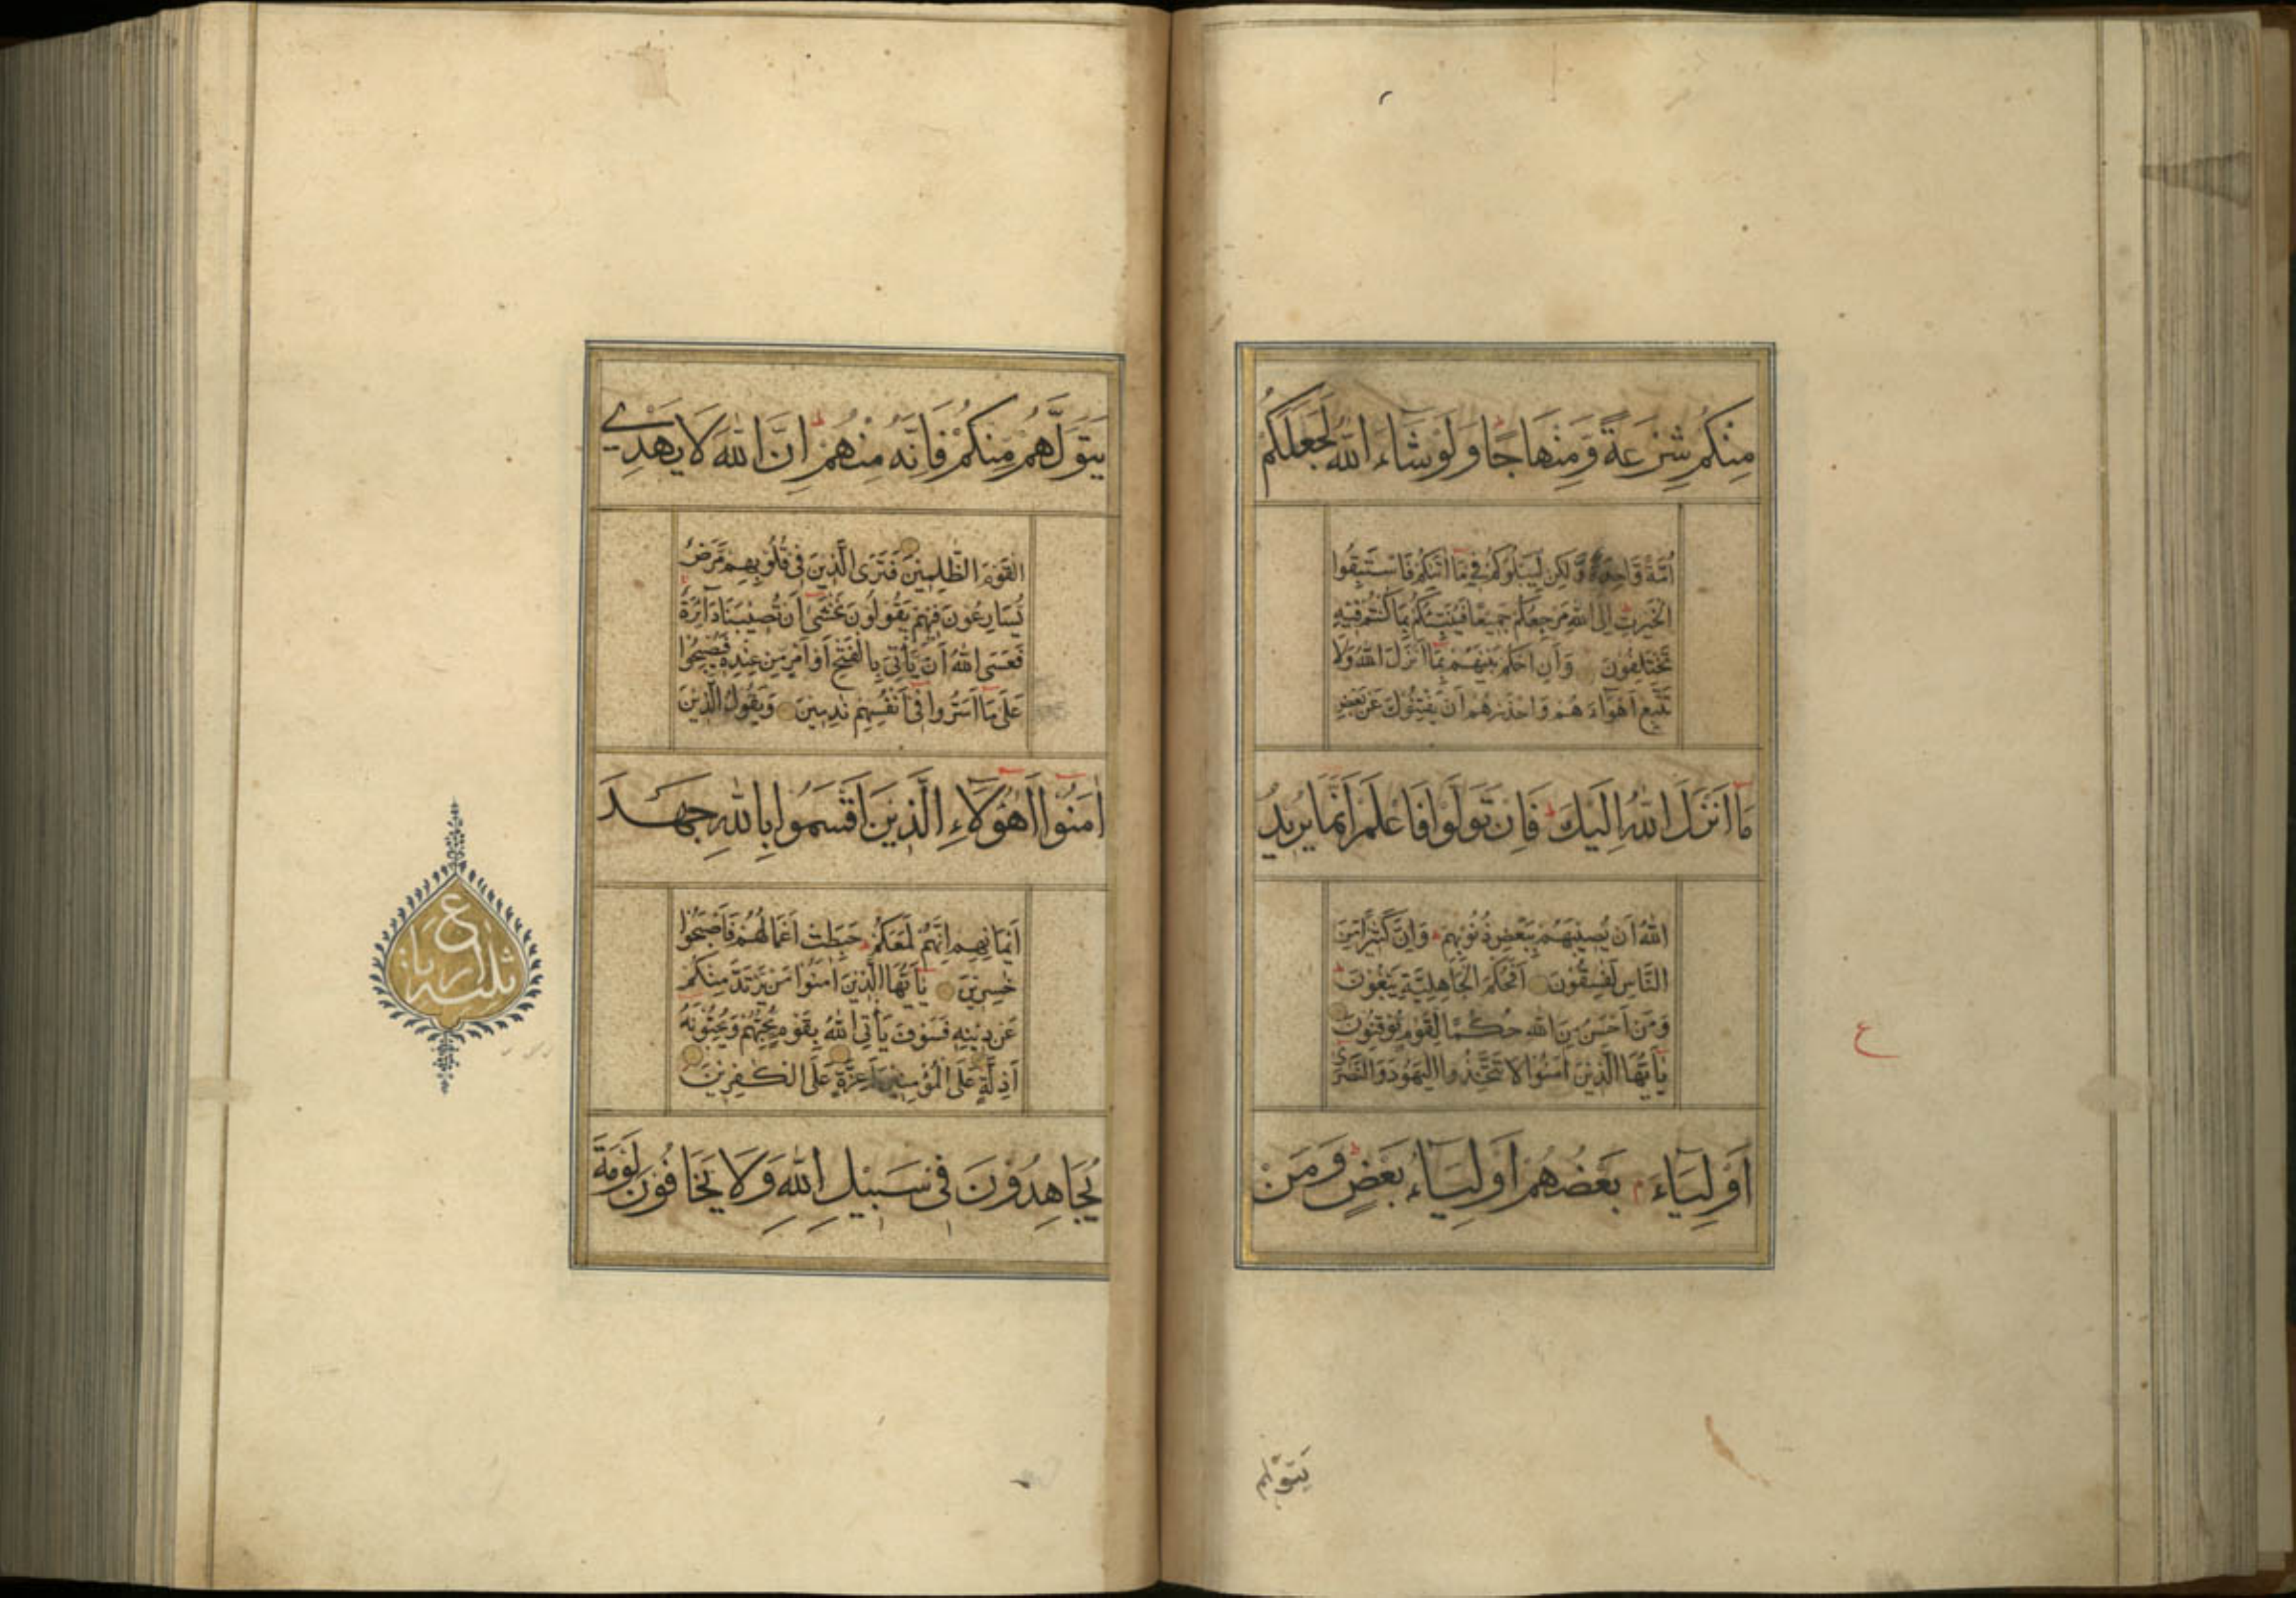 مِنْكُمْ شِرْعَةً وَّمِنْهَاجًا وَلَوْ شَاءَ اللّٰهُ لَجَعَلَكُمْ
اُمَّةً وَّاحِدَةً وَّلٰكِنْ لِيَبْلُوَكُمْ فِي مَا اٰتٰىكُمْ فَاسْتَبِقُوا
الْخَيْرٰتِ اِلَى اللّٰهِ مَرْجِعُكُمْ جَمِيْعًا فَيُنَبِّئُكُمْ بِمَا كُنْتُمْ فِيْهِ
تَخْتَلِفُوْنَ وَاَنِ احْكُمْ بَيْنَهُمْ بِمَا اَنْزَلَ اللّٰهُ وَلَا
تَتَّبِعْ اَهْوَاءَهُمْ وَاحْذَرْهُمْ اَنْ يَفْتِنُوْكَ عَنْ بَعْضِ
مَا اَنْزَلَ اللّٰهُ اِلَيْكَ ط فَاِنْ تَوَلَّوْا فَاعْلَمْ اَنَّمَا يُرِيْدُ
اللّٰهُ اَنْ يُصِيْبَهُمْ بِبَعْضِ ذُنُوْبِهِمْ ط وَاِنَّ كَثِيْرًا مِّنَ
النَّاسِ لَفٰسِقُوْنَ اَفَحُكْمَ الْجَاهِلِيَّةِ يَبْغُوْنَ ط
وَمَنْ اَحْسَنُ مِنَ اللّٰهِ حُكْمًا لِّقَوْمٍ يُّوْقِنُوْنَ
يٰاَيُّهَا الَّذِيْنَ اٰمَنُوْا لَا تَتَّخِذُوا الْيَهُوْدَ وَالنَّصٰرٰى
اَوْلِيَاءَ م بَعْضُهُمْ اَوْلِيَاءُ بَعْضٍ ط وَمَنْ
ع
يَتَوَلَّهُمْ
يَتَوَلَّهُمْ مِّنْكُمْ فَاِنَّهُ مِنْهُمْ ط اِنَّ اللّٰهَ لَا يَهْدِي
الْقَوْمَ الظّٰلِمِيْنَ فَتَرَى الَّذِيْنَ فِي قُلُوْبِهِمْ مَّرَضٌ
يُّسَارِعُوْنَ فِيْهِمْ يَقُوْلُوْنَ نَخْشٰى اَنْ تُصِيْبَنَا دَائِرَةٌ ط
فَعَسَى اللّٰهُ اَنْ يَّأْتِيَ بِالْفَتْحِ اَوْ اَمْرٍ مِّنْ عِنْدِهِ فَيُصْبِحُوْا
عَلٰى مَا اَسَرُّوْا فِي اَنْفُسِهِمْ نٰدِمِيْنَ وَيَقُوْلُ الَّذِيْنَ
اٰمَنُوْا اَهٰؤُلَاءِ الَّذِيْنَ اَقْسَمُوْا بِاللّٰهِ جَهْدَ
اَيْمَانِهِمْ اِنَّهُمْ لَمَعَكُمْ ط حَبِطَتْ اَعْمَالُهُمْ فَاَصْبَحُوْا
خٰسِرِيْنَ يٰاَيُّهَا الَّذِيْنَ اٰمَنُوْا مَنْ يَّرْتَدَّ مِنْكُمْ
عَنْ دِيْنِهِ فَسَوْفَ يَأْتِي اللّٰهُ بِقَوْمٍ يُّحِبُّهُمْ وَيُحِبُّوْنَهُ
اَذِلَّةٍ عَلَى الْمُؤْمِنِيْنَ اَعِزَّةٍ عَلَى الْكٰفِرِيْنَ
يُجَاهِدُوْنَ فِي سَبِيْلِ اللّٰهِ وَلَا يَخَافُوْنَ لَوْمَةَ
ثلثة ارباع